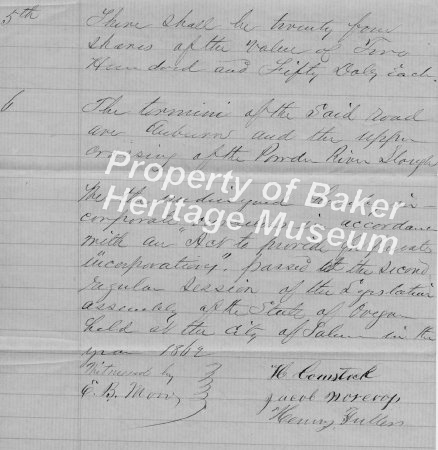 5th There shall be twenty four
shares of the value of Two
Hundred and Fifty Dols Each.
6 The termini of the Said road
are Auburn and the upper
crossing of the Powder River Slough
Property of Baker
Heritage Museum
The undersigned
corporate in accordance
with an "Act to provide for private
incorporations". passed at the second
regular Session of the Legislative
assembly of the State of Oregon
held at the City of Salem in the
year 1862
Witnessed by
E. B.
H. Comstock
Jacob
Henry Fuller